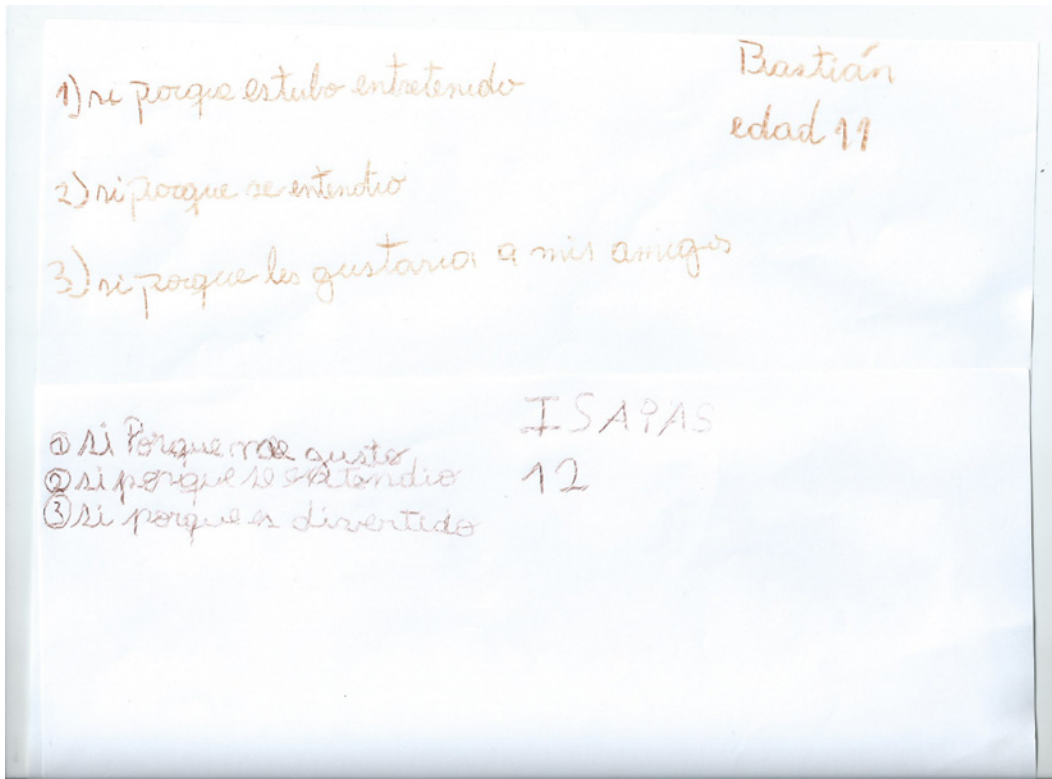 Bastián
edad 11
1) si porque estubo entretenido
2) si porque se entendio
3) si porque les gustaria a mis amigos
ISAIAS
12
① si Porque me gusto
② si porque se entendio
③ si porque es divertido